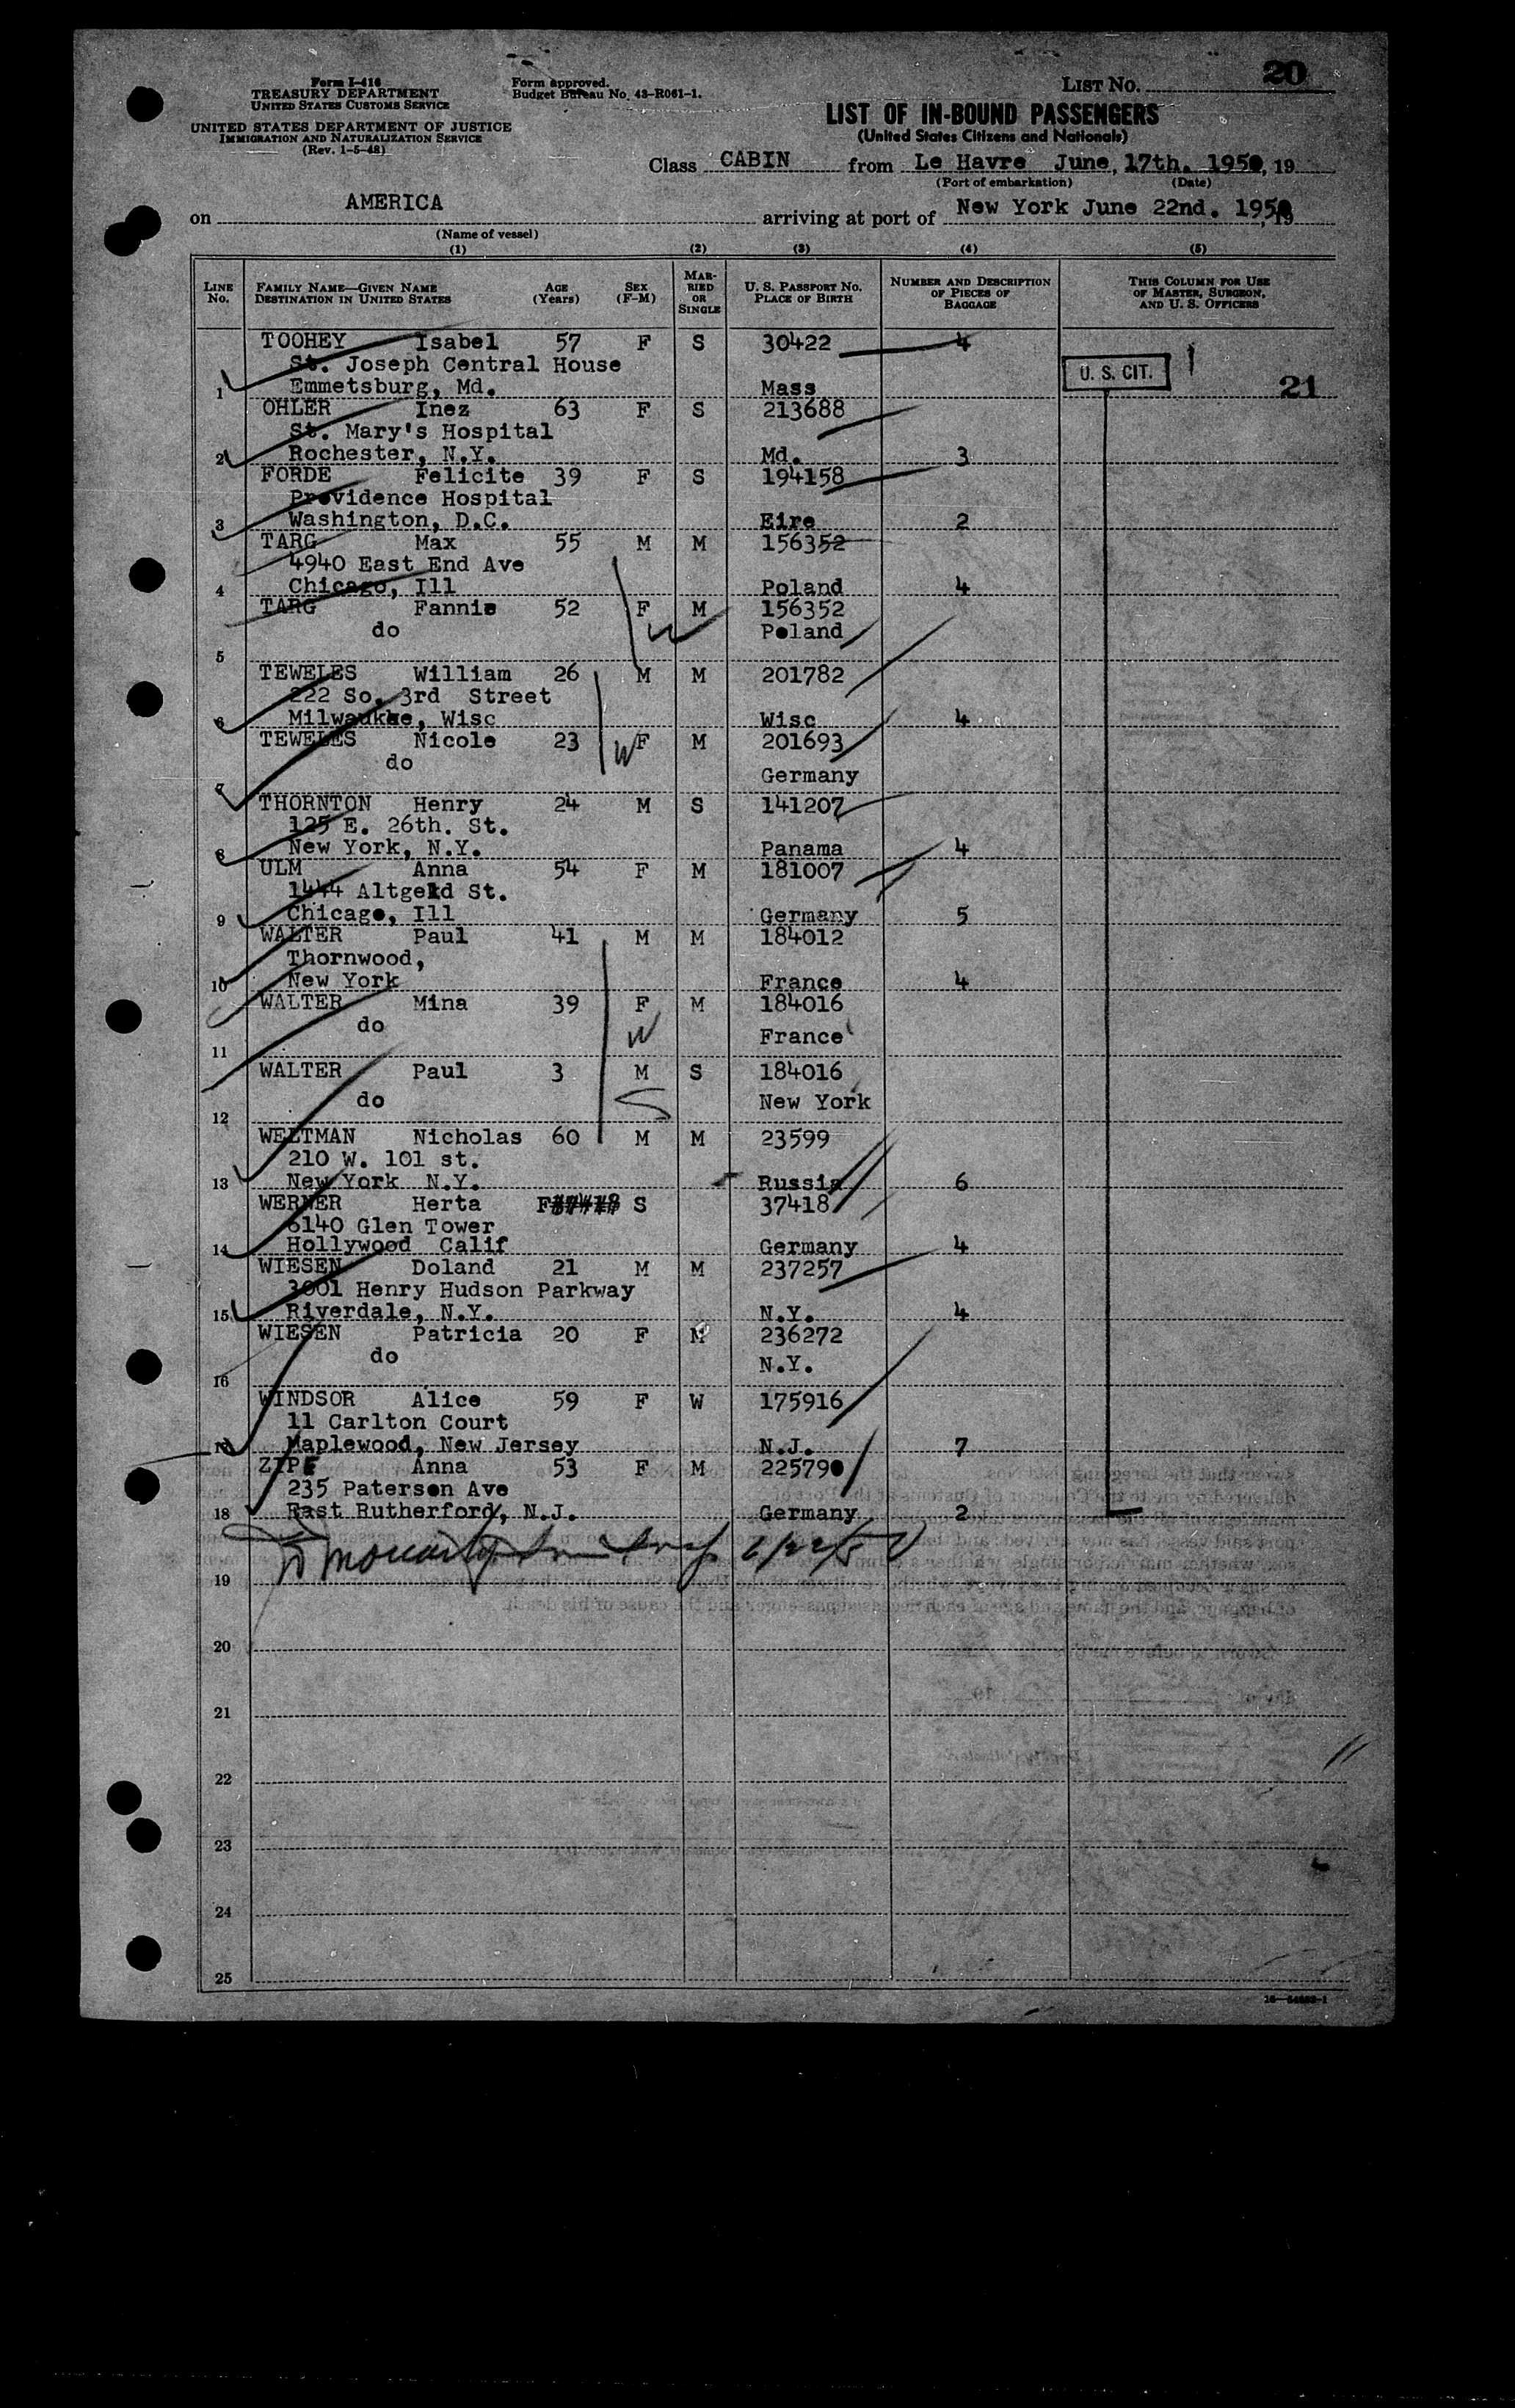 Form I-416
TREASURY DEPARTMENT
UNITED STATES CUSTOMS SERVICE
UNITED STATES DEPARTMENT OF JUSTICE
IMMIGRATION AND NATURALIZATION SERVICE
(Rev. 1-5-48)
Form approved.
Budget Bureau No. 43-R061-1.
LIST No. 20
LIST OF IN-BOUND PASSENGERS
(United States Citizens and Nationals)
Class CABIN from Le Havre June, 17th. 1950, 19
(Port of embarkation) (Date)
on AMERICA arriving at port of New York June 22nd. 1950, 19
(Name of vessel)
(1) (2) (3) (4) (5)
LINE No. FAMILY NAME—GIVEN NAME DESTINATION IN UNITED STATES AGE (Years) SEX (F-M) MARRIED OR SINGLE U. S. PASSPORT No. PLACE OF BIRTH NUMBER AND DESCRIPTION OF PIECES OF BAGGAGE THIS COLUMN FOR USE OF MASTER, SURGEON, AND U. S. OFFICERS
TOOHEY Isabel 57 F S 30422 4
St. Joseph Central House U. S. CIT.
1 Emmetsburg, Md. Mass 21
OHLER Inez 63 F S 213688
St. Mary's Hospital
2 Rochester, N.Y. Md. 3
FORDE Felicite 39 F S 194158
Providence Hospital
3 Washington, D.C. Eire 2
TARG Max 55 M M 156352
4940 East End Ave
4 Chicago, Ill Poland 4
TARG Fannie 52 F M 156352
do W Poland
5
TEWELES William 26 M M 201782
222 So. 3rd Street
6 Milwaukee, Wisc Wisc 4
TEWELES Nicole 23 W F M 201693
do
7 Germany
THORNTON Henry 24 M S 141207
125 E. 26th. St.
8 New York, N.Y. Panama 4
ULM Anna 54 F M 181007
1444 Altgeld St.
9 Chicago, Ill Germany 5
WALTER Paul 41 M M 184012
Thornwood,
10 New York France 4
WALTER Mina 39 F M 184016
do W France
11
WALTER Paul 3 M S 184016
do S New York
12
WELTMAN Nicholas 60 M M 23599
210 W. 101 st.
13 New York N.Y. Russia 6
WERNER Herta F 37418 S 37418
6140 Glen Tower
14 Hollywood Calif Germany 4
WIESEN Doland 21 M M 237257
3001 Henry Hudson Parkway
15 Riverdale, N.Y. N.Y. 4
WIESEN Patricia 20 F M 236272
do N.Y.
16
WINDSOR Alice 59 F W 175916
11 Carlton Court
17 Maplewood, New Jersey N.J. 7
ZIPF Anna 53 F M 225790
235 Paterson Ave
18 East Rutherford, N.J. Germany 2
6/22/50
19
20
21
22
23
24
25